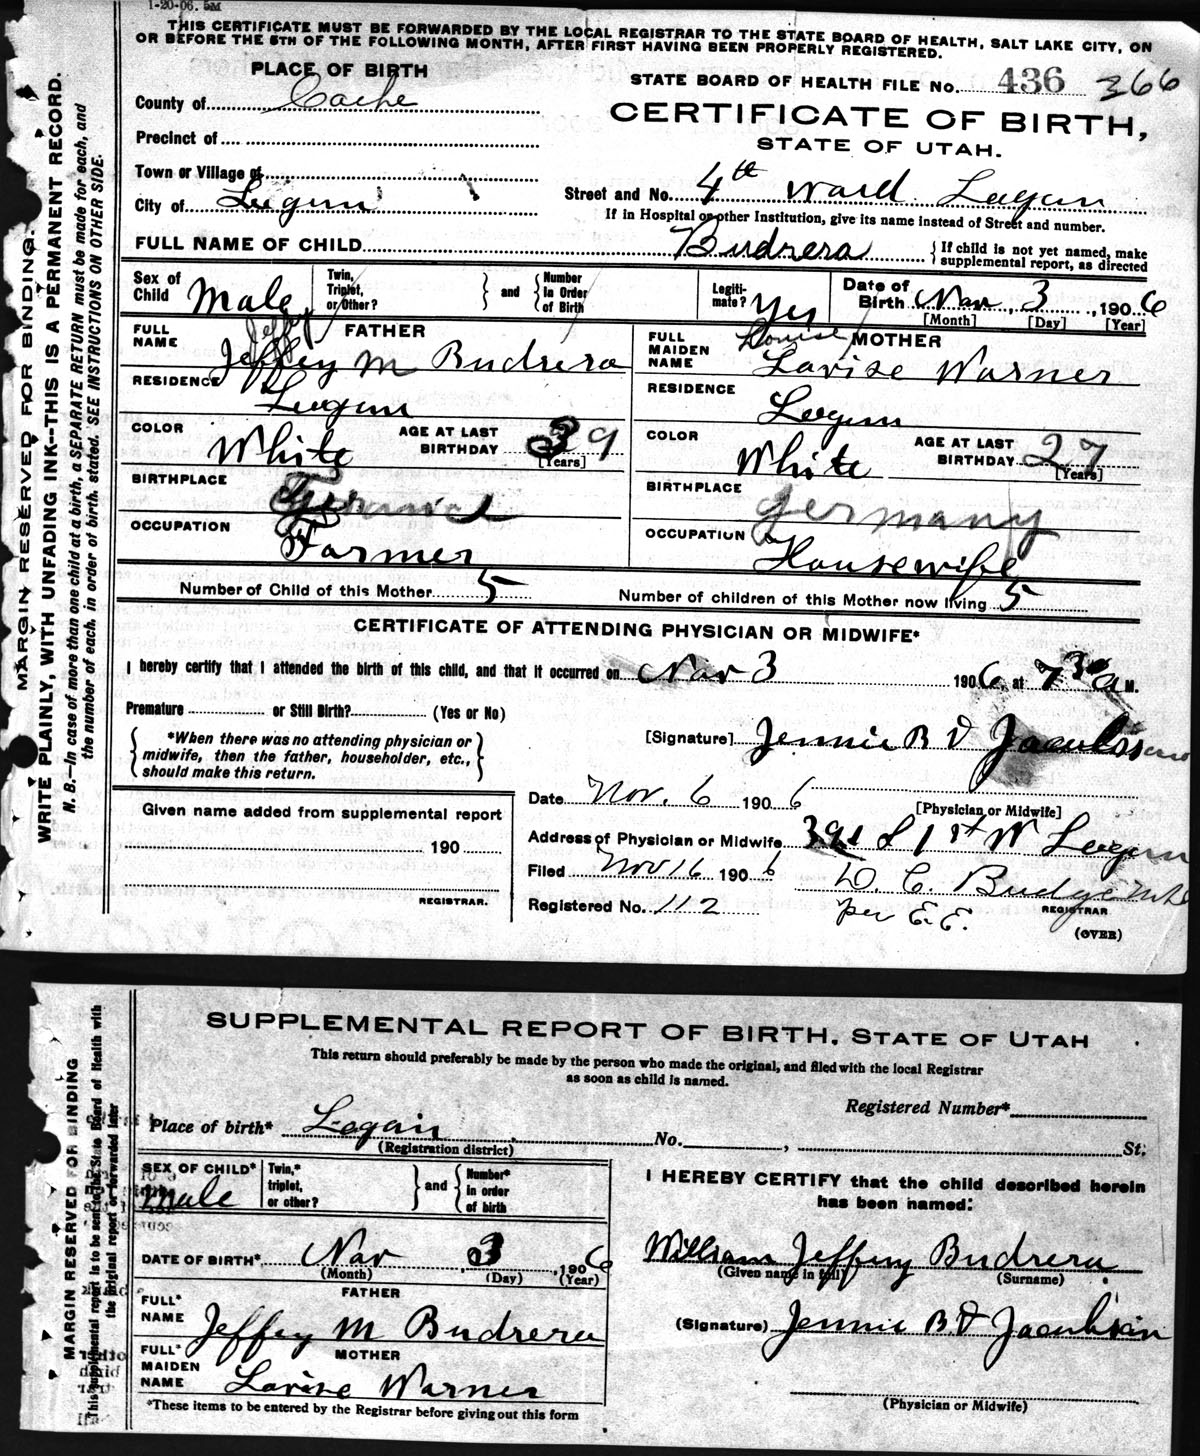 1-20-06. 5M
THIS CERTIFICATE MUST BE FORWARDED BY THE LOCAL REGISTRAR TO THE STATE BOARD OF HEALTH, SALT LAKE CITY, ON
OR BEFORE THE 5TH OF THE FOLLOWING MONTH, AFTER FIRST HAVING BEEN PROPERLY REGISTERED.
MARGIN RESERVED FOR BINDING.
WRITE PLAINLY, WITH UNFADING INK—THIS IS A PERMANENT RECORD.
N. B.—In case of more than one child at a birth, a SEPARATE RETURN must be made for each, and
the number of each, in order of birth, stated. SEE INSTRUCTIONS ON OTHER SIDE.
PLACE OF BIRTH
STATE BOARD OF HEALTH FILE No. 436 366
County of Cache
CERTIFICATE OF BIRTH,
STATE OF UTAH.
Precinct of
Town or Village of
City of Logan
Street and No. 4th ward Logan
If in Hospital or other Institution, give its name instead of Street and number.
FULL NAME OF CHILD Budrera
{If child is not yet named, make
supplemental report, as directed
Sex of Child Male
Twin, Triplet, or Other? } and { Number In Order of Birth
Legiti-mate? Yes
Date of Birth Nov 3, 1906
[Month] [Day] [Year]
FATHER
FULL NAME Jeffey M Budrera
MOTHER
FULL MAIDEN NAME Louise Lavise Warner
RESIDENCE Logan
RESIDENCE Logan
COLOR White AGE AT LAST BIRTHDAY 39 [Years]
COLOR White AGE AT LAST BIRTHDAY 27 [Years]
BIRTHPLACE
BIRTHPLACE Germany
OCCUPATION Farmer
OCCUPATION Housewife
Number of Child of this Mother 5
Number of children of this Mother now living 5
CERTIFICATE OF ATTENDING PHYSICIAN OR MIDWIFE*
I hereby certify that I attended the birth of this child, and that it occurred on Nov 3 1906, at 7 30 a M.
Premature or Still Birth? (Yes or No)
{*When there was no attending physician or
midwife, then the father, householder, etc.,
should make this return.}
[Signature] Jennie B D Jacobson
Date Nov. 6 1906
[Physician or Midwife]
Given name added from supplemental report
190
REGISTRAR.
Address of Physician or Midwife 391 S 1st W Logan
Filed Nov 16 1906
D. C. Budge
Registered No. 112
per E.E.
REGISTRAR
(OVER)
SUPPLEMENTAL REPORT OF BIRTH, STATE OF UTAH
This return should preferably be made by the person who made the original, and filed with the local Registrar
as soon as child is named.
MARGIN RESERVED FOR BINDING
This supplemental report is to be sent to the State Board of Health with
the original report or forwarded later
Registered Number*
Place of birth* Logan No. , St.
(Registration district)
SEX OF CHILD* Male
Twin,* triplet, or other? } and { Number* in order of birth
I HEREBY CERTIFY that the child described herein
has been named:
DATE OF BIRTH* Nov 3, 1906
(Month) (Day) (Year)
William Jeffery Budrera
(Given name in full) (Surname)
FATHER
FULL* NAME Jeffey M Budrera
(Signature) Jennie B. D Jacobson
MOTHER
FULL* MAIDEN NAME Lavise Warner
(Physician or Midwife)
*These items to be entered by the Registrar before giving out this form